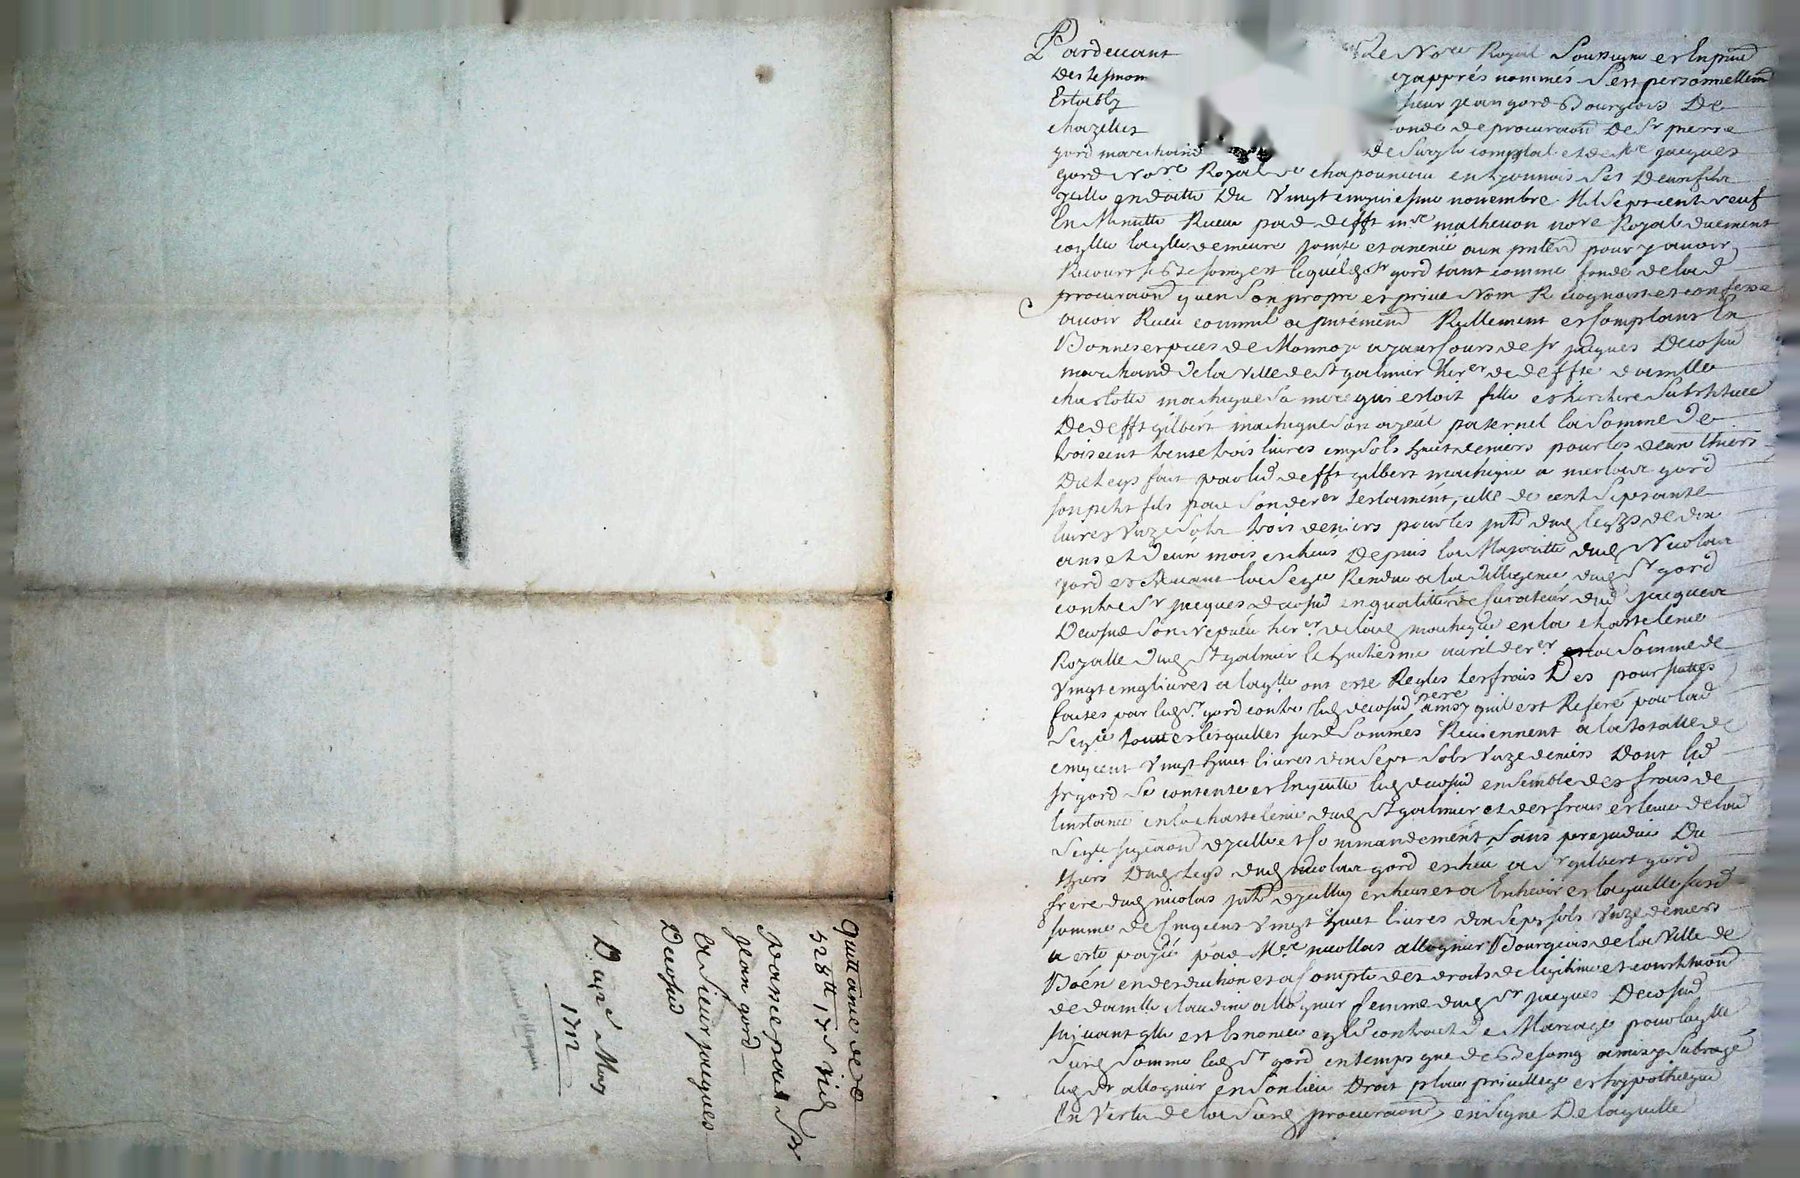 Pardevant Le No.re Royal Soussigne et En pñce
Des tesmoin cy apprés nommés S'est personnellemt
Estably sieur jean gord Bourgeois De
chazelles fondé de procuraoñ De Sr pierre
gord marchand De Sury le comptal et de me jacques
gord No.re Royal de chaponneau en Lyonnois Ses Deux fils
ycelle en datte Du Vingt cinquiesme novembre Mil Sept cent neuf
En Minutte Receu par defft me matheuon no.re Royal duement
laqlle demeure jointe et annexée aux pñtes pour y avoir
Recours Si Besoing est lequel Sr gord tant comme fondé de lad
procuraoñ quen Son propre et privé Nom Recognoist et confesse
avoir Receu comme il a pñtement Reellement et Comptant En
Bonnes especes de Monnoye ayant Cours de Sr jacques Decosud
marchand de la Ville de St galmier her.er de deffte damlle
charlotte machigue Sa mere qui estoit fille et heritiere Substituee
De defft gilbert machigue Son ayeul paternel la Somme de
trois cent trente trois livres cinq Sols huit deniers pour les deux thiers
Du Legs fait par led defft gilbert machigue a nicolas gord
Son petit fils par Son der.er testament, celle de cent Septante
livres Unze Sols trois deniers pour les jntr dud legs de dix
ans et deux mois escheus Depuis la Majoritté dud Nicolas
gord et Suivant la Sence Rendue a la dilligence dud Sr gord
contre Sr jacques decosud en qualitté de Curateur dud jacques
Decosud Son nepveu her.er de lad machigue en la chastelenie
Royalle dud St galmier le huitiesme avril der.er et la Somme de
Vingt cinq livres a laqlle ont esté Regles les frais Des poursuittes
faites par led Sr gord contre led decosud pere ainsy quil est Referé par lad
Sence toutes lesquelles Surd Sommes Reviennent a la totalle de
cinq cent Vingt huit livres dix Sept Sols Unze deniers Dont led
Sr gord Se contente et En quitte led decosud ensemble des frais de
linstance en la chastelenie dud St galmier et des frais et levee de lad
Sence Signiaoñ dycelle et Commandement Sans prejudice Du
thiers Dud Legs dud nicolas gord escheu a Sr gilbert gord
frere dud nicolas jntr dycelluy escheus et a Escheoir et laquelle Surd
Somme de Cinq cens Vingt huit livres dix Sept Sols Unze deniers
a esté payée par Me nicollas allognier Bourgeois de la Ville de
Boën en desduction et a Compte des droits de legitime et constituon
de damlle claudine allognier femme dud Sr jacques Decosud
Suivant qlle est Enoncé en le contract de Mariage pour laqlle
Surd Somme led Sr gord en temps que de Besoing a mis et Subrogé
led Sr allognier en Son lieu Droit place privillege et hypotheque
En Vertu de la Surd procuraoñ, en Signe De laquelle
Quittance de
528tt 17s 11d
passée par Sr
jean gord
a Sieur jacques
Decosud
Du 2e May
1712